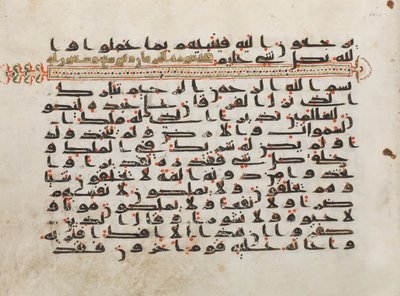 م يرجعون اليه فينبئهم بما عملوا و ا
لله بكل شي عليم
بسم الله الرحمن الرحيم تبارك
الذي نزل الفرقان على عبده ليكون
للعلمين نذيرا الذي له ملك ا
لسموات والارض ولم يتخذ ولدا و
لم يكن له شريك في الملك و
خلق كل شي فقدره تقديرا وا
تخذوا من دونه الهة لا يخلقون شيا
و هم يخلقون ولا يملكون لانفسهم
ضرا ولا نفعا ولا يملكون موتا و
لا حيوة ولا نشورا وقال الذين
كفروا ان هذا الا افك افتر
يه واعانه عليه قوم اخرون فقد